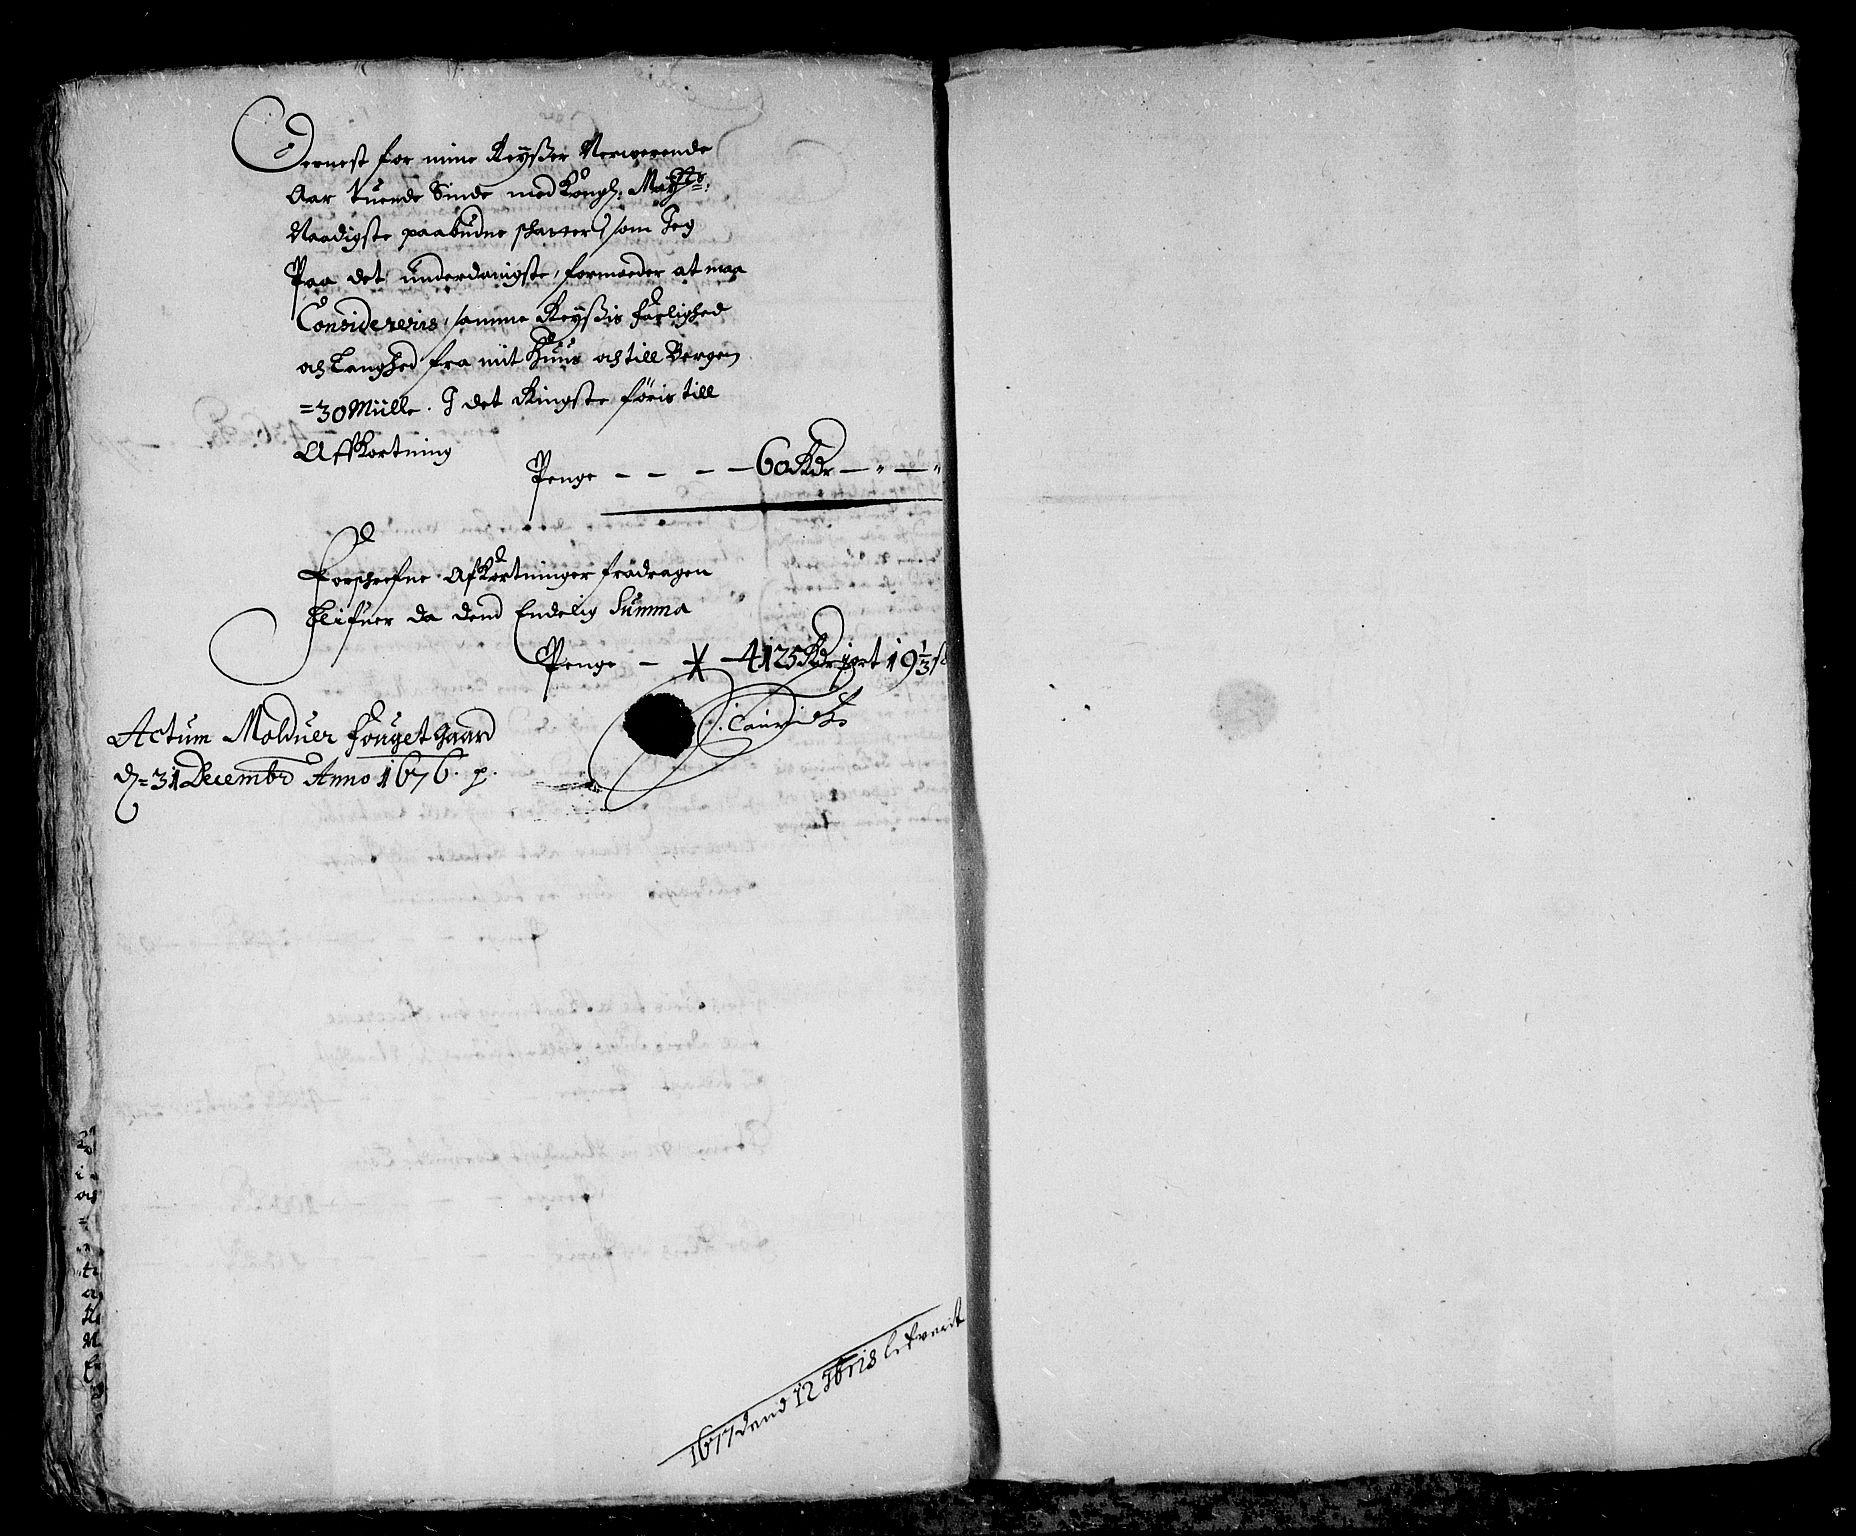 Dernest for mine Reyßer Nerwerende
Aar tuende Sinde med Kongl: Mayts:
Naadigste paabudne schatter, som Jeg
Paa det underdanigste, formoeder at maa
Considereris, samme Reyßis farlighed
och Langhed fra mit Huus och till Bergen
=30 Mülle. I det Ringste føris till
Affkortning
Penge – – – – 60 Rdr – " – "
Forschrefne Afkortninger fradragen
blifuer da dend Endelig Summa
Penge – – 4125 Rdr 1 ort 19 1/3 s
Actum Molduer fougetgaard
d= 31 Decembr Anno 1676. p.
J. Lauridts
1677 dend 12 Xbris lefverit